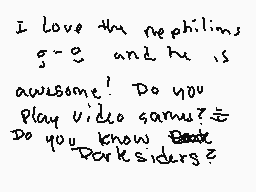 I Love the nephilims
g-g and he is
awesome! Do you
Play video games?
Do you know
Darksiders?